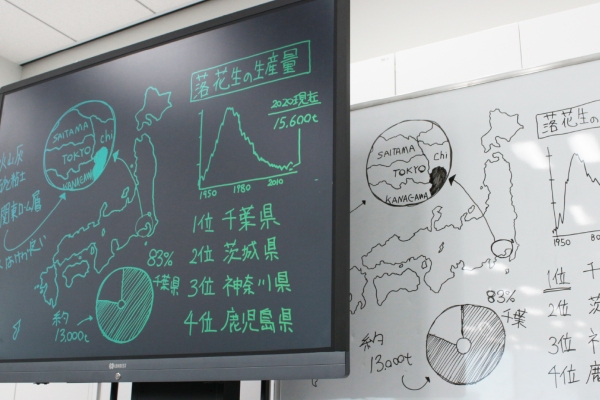 落花生の生産量
2020現在
15,600t
1950 1980 2010
SAITAMA
Chi
TOKYO
KANAGAWA
関東ローム層
83%
千葉県
約
13,000t
1位 千葉県
2位 茨城県
3位 神奈川県
4位 鹿児島県
落花生の
SAITAMA
Chi
TOKYO
KANAGAWA
1950 80
83%
千葉
約
13,000t
1位
2位
3位
4位